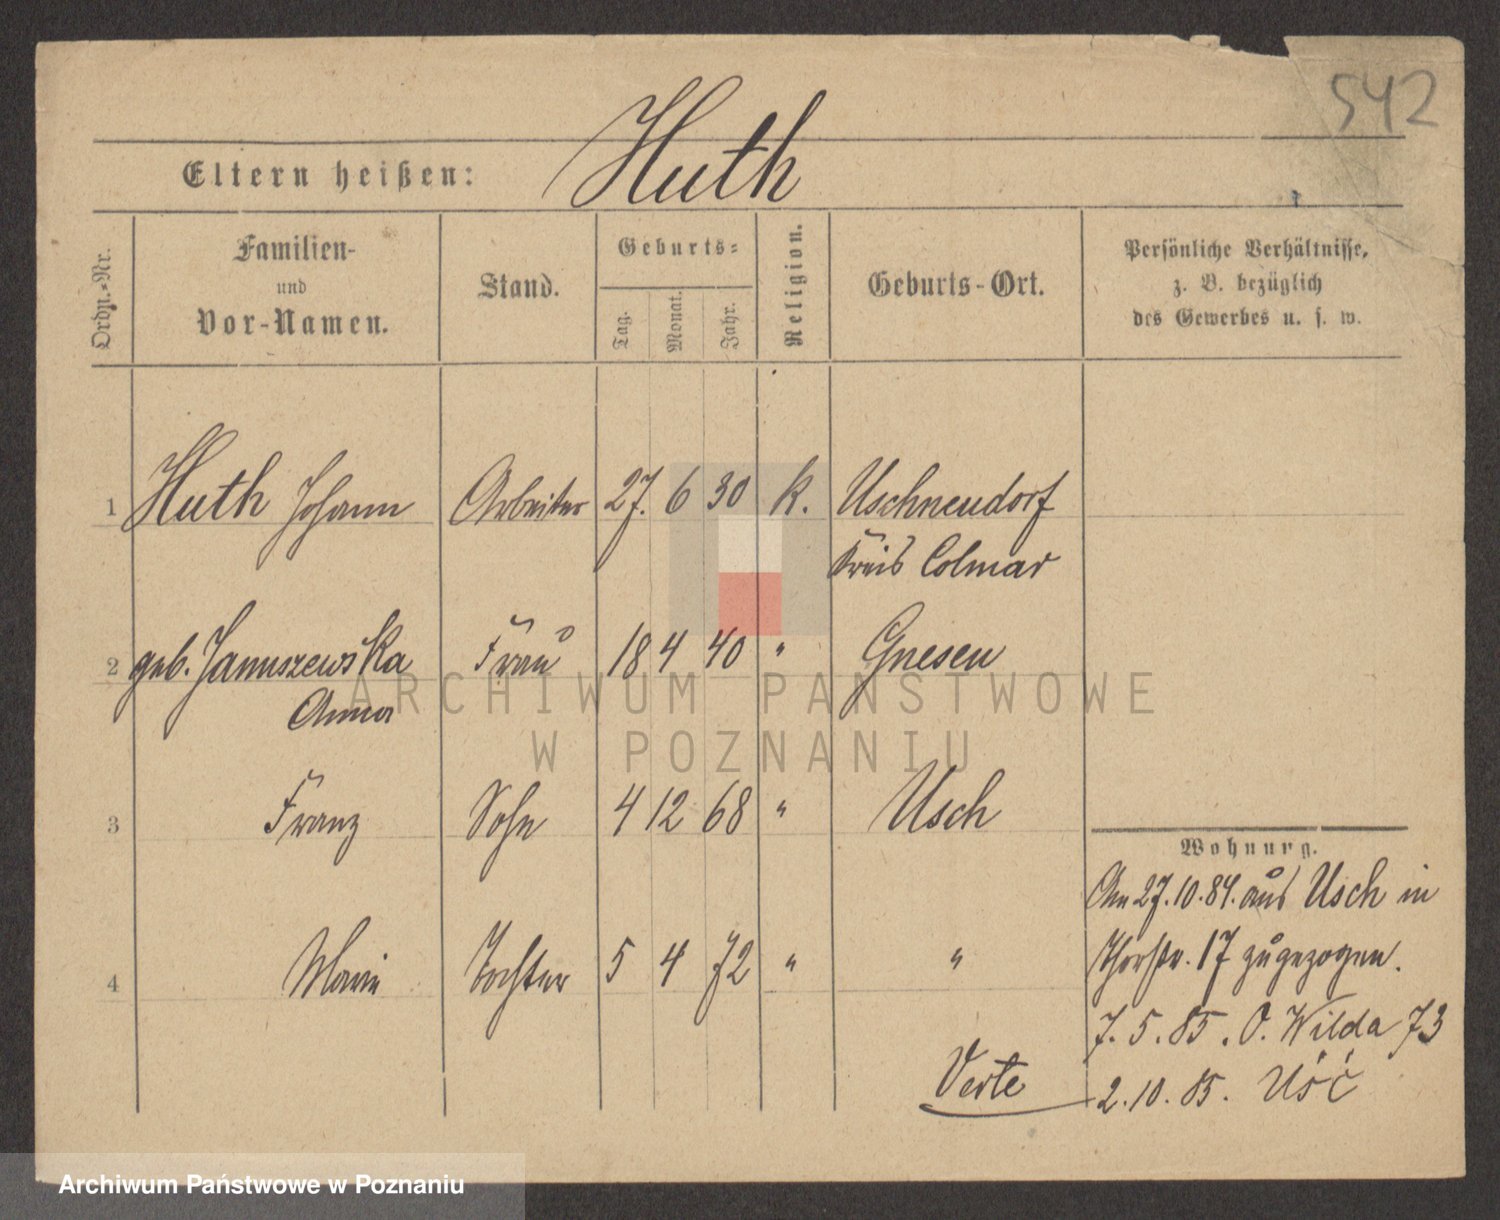 542
Eltern heißen: Huth
Ordn.-Nr.
Familien-
und
Vor-Namen.
Stand.
Geburts-
Tag.
Monat.
Jahr.
Religion.
Geburts-Ort.
Persönliche Verhältnisse,
z. B. bezüglich
des Gewerbes u. s. w.
1 Huth Johann Arbeiter 27. 6 30 k. Uschneudorf
Kreis Colmar
2 geb. Januszewska Frau 18 4 40 " Gnesen
Anna
3 Franz Sohn 4 12 68 " Usch
4 Marie Tochter 5 4 72 " "
Wohnung.
Am 27.10.84. aus Usch in
Thorstr. 17 zugezogen.
7. 5. 85. O. Wilda 73
2. 10. 85. Uść
Verte
ARCHIWUM PAŃSTWOWE
W POZNANIU
Archiwum Państwowe w Poznaniu